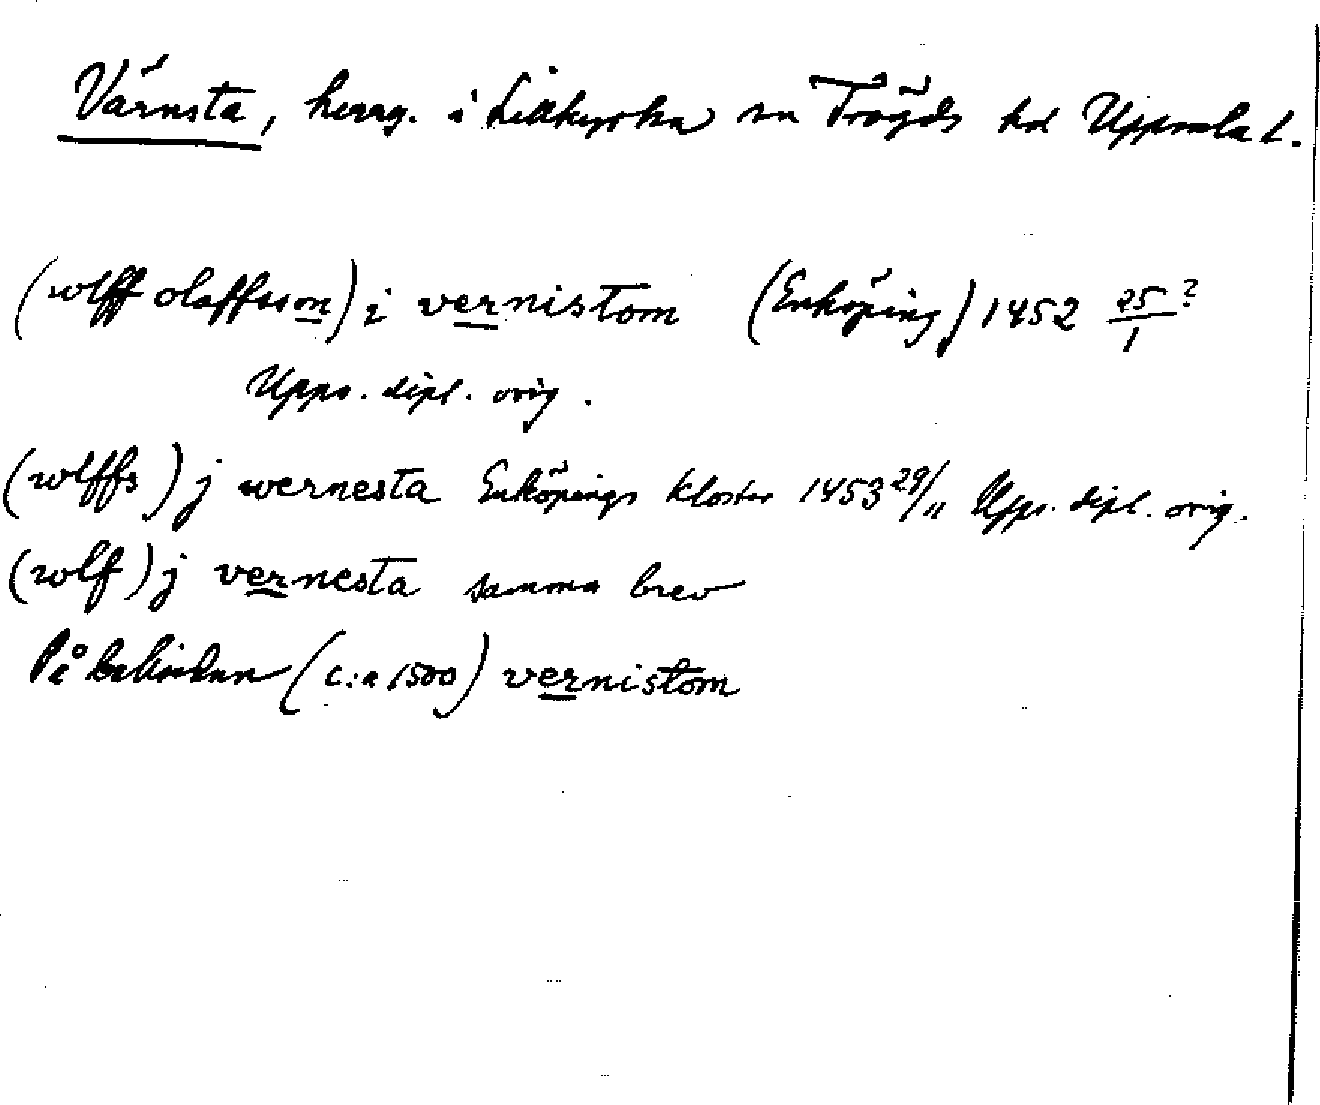 Värnsta, herrg. i Lillkyrka sn Trögds hd Uppsala l.
(wlff olaffsson) i vernistom (Enköping) 1452 25/1 ?
Upps. dipl. orig.
(wlffs) j wernesta Enköpings kloster 1453 29/11 Upps. dipl. orig.
(wlf) j vernesta samma brev
På baksidan (c:a 1500) vernistom